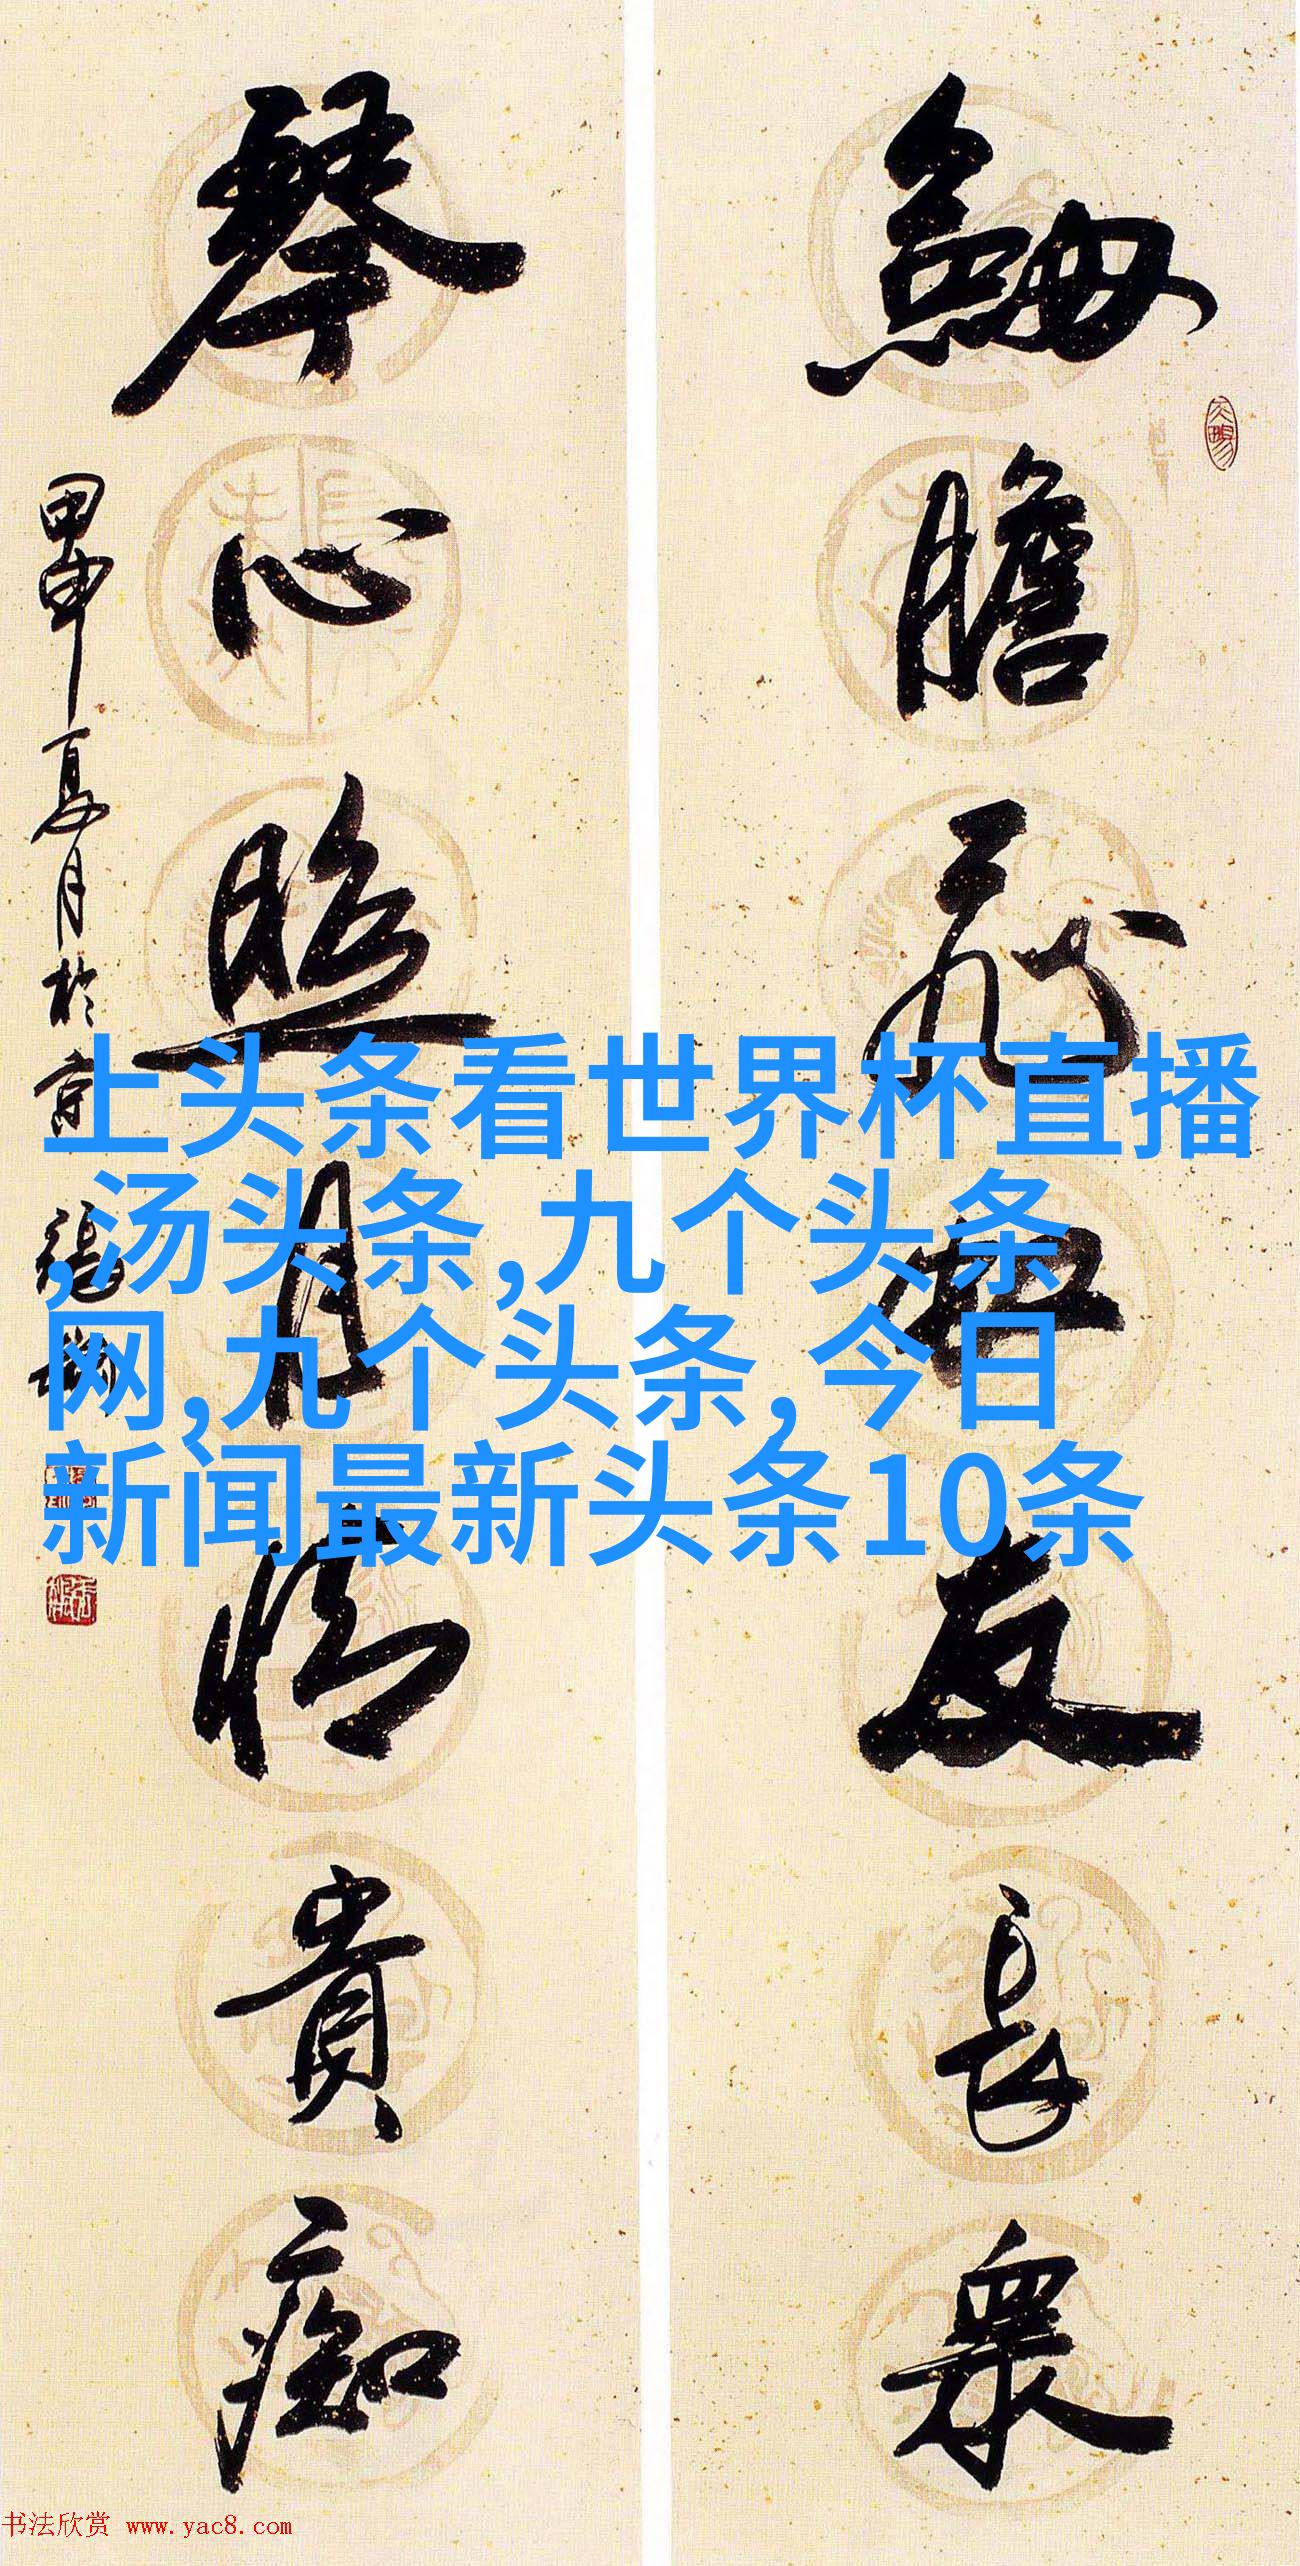 劍膽
友長衆
琴心照月情貴痴
甲申夏月於京
上头条看世界杯直播
,汤头条,九个头条
网,九个头条,今日
新闻最新头条10条
书法欣赏 www.yac8.com